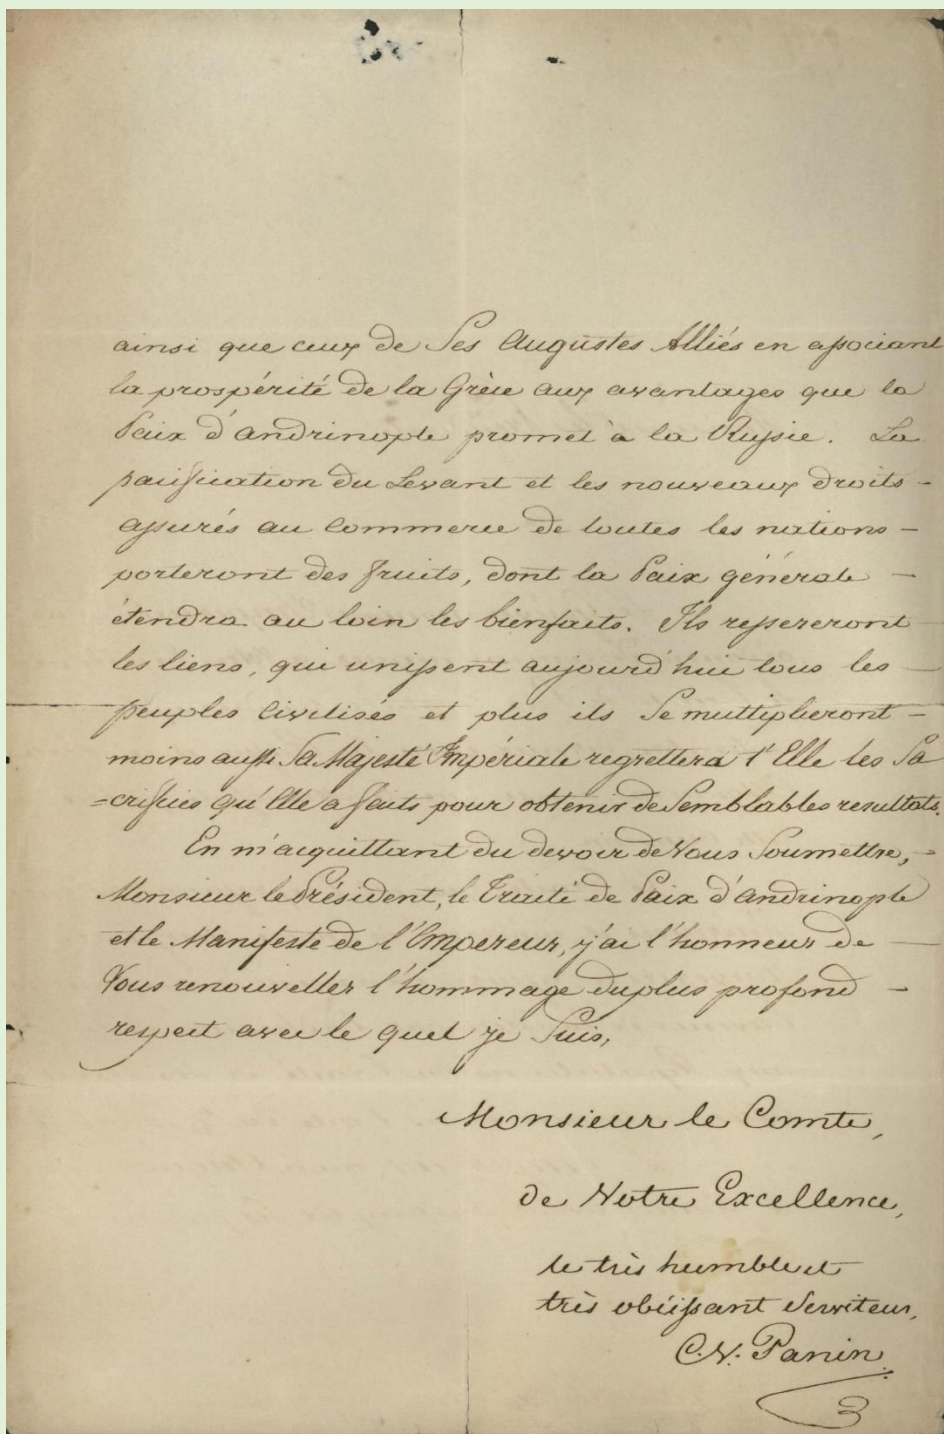 ainsi que ceux de Ses Augustes Alliés en associant
la prospérité de la Grèce aux avantages que la
Paix d'andrinople promet à la Russie. La
pacification du Levant et les nouveaux droits -
assurés au Commerce de toutes les nations -
porteront des fruits, dont la Paix générale -
étendra au loin les bienfaits. Ils resserreront
les liens, qui unissent aujourd'hui tous les -
peuples Civilisés et plus ils Se multiplieront -
moins aussi Sa Majesté Impériale regrettera t'Elle les Sa
=crifices qu'Elle a faits pour obtenir de Semblables resultats.
En m'acquittant du devoir de Vous Soumettre, -
Monsieur le Président, le Traité de Paix d'andrinople
et le Manifeste de l'Empereur, j'ai l'honneur de -
Vous renouveller l'hommage du plus profond -
respect avec le quel je Suis,
Monsieur le Comte,
de Votre Excellence,
le très humble et
très obéissant Serviteur,
C.V. Panin